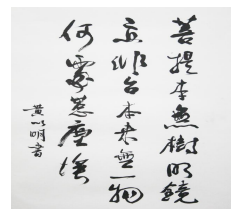 菩提本無樹明鏡
亦非台本来無一物
何處惹塵埃
黄以明書